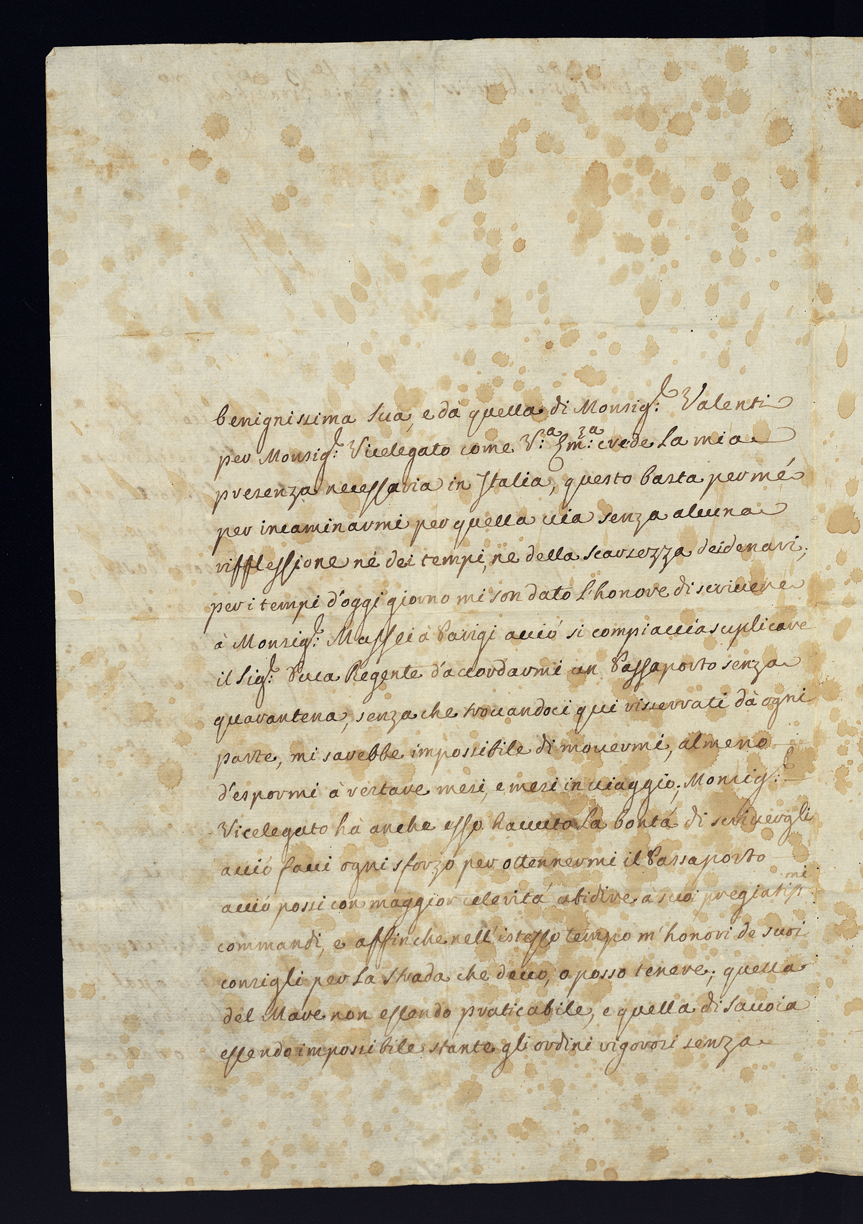 benignissima sua, e dà quella di Monsig.r Valenti
per Monsig.r Vicelegato come V.a Em.za crede la mia
presenza necessaria in Italia, questo basta per mé
per incaminarmi per quella via senza alcuna
rifflessione né dei tempi, ne della scarsezza dei denari,
per i tempi d'oggi giorno mi son dato l'honore di scrivere
à Monsig.r Maffei à Parigi acció si compiaccia suplicare
il Sig.r Duca Regente d'accordarmi un Passaporto senza
quarantena, senza che trovandoci qui riserrati dà ogni
parte, mi sarebbe impossibile di movermi, al meno
d'espormi à restare mesi, e mesi in viaggio. Monsig.r
Vicelegato hà anche esso havuto la bontá di scrivergli
acció facci ogni sforzo per ottennermi il Passaporto
acció possi con maggior celeritá obidire à suoi pregiatiss.mi
commandi, e affinche nell'istesso tempo m'honori de suoi
consigli per la strada che devo, o posso tenere; quella
del Mare non essendo praticabile, e quella di Savoia
essendo impossibile stante gli ordini rigorosi senza